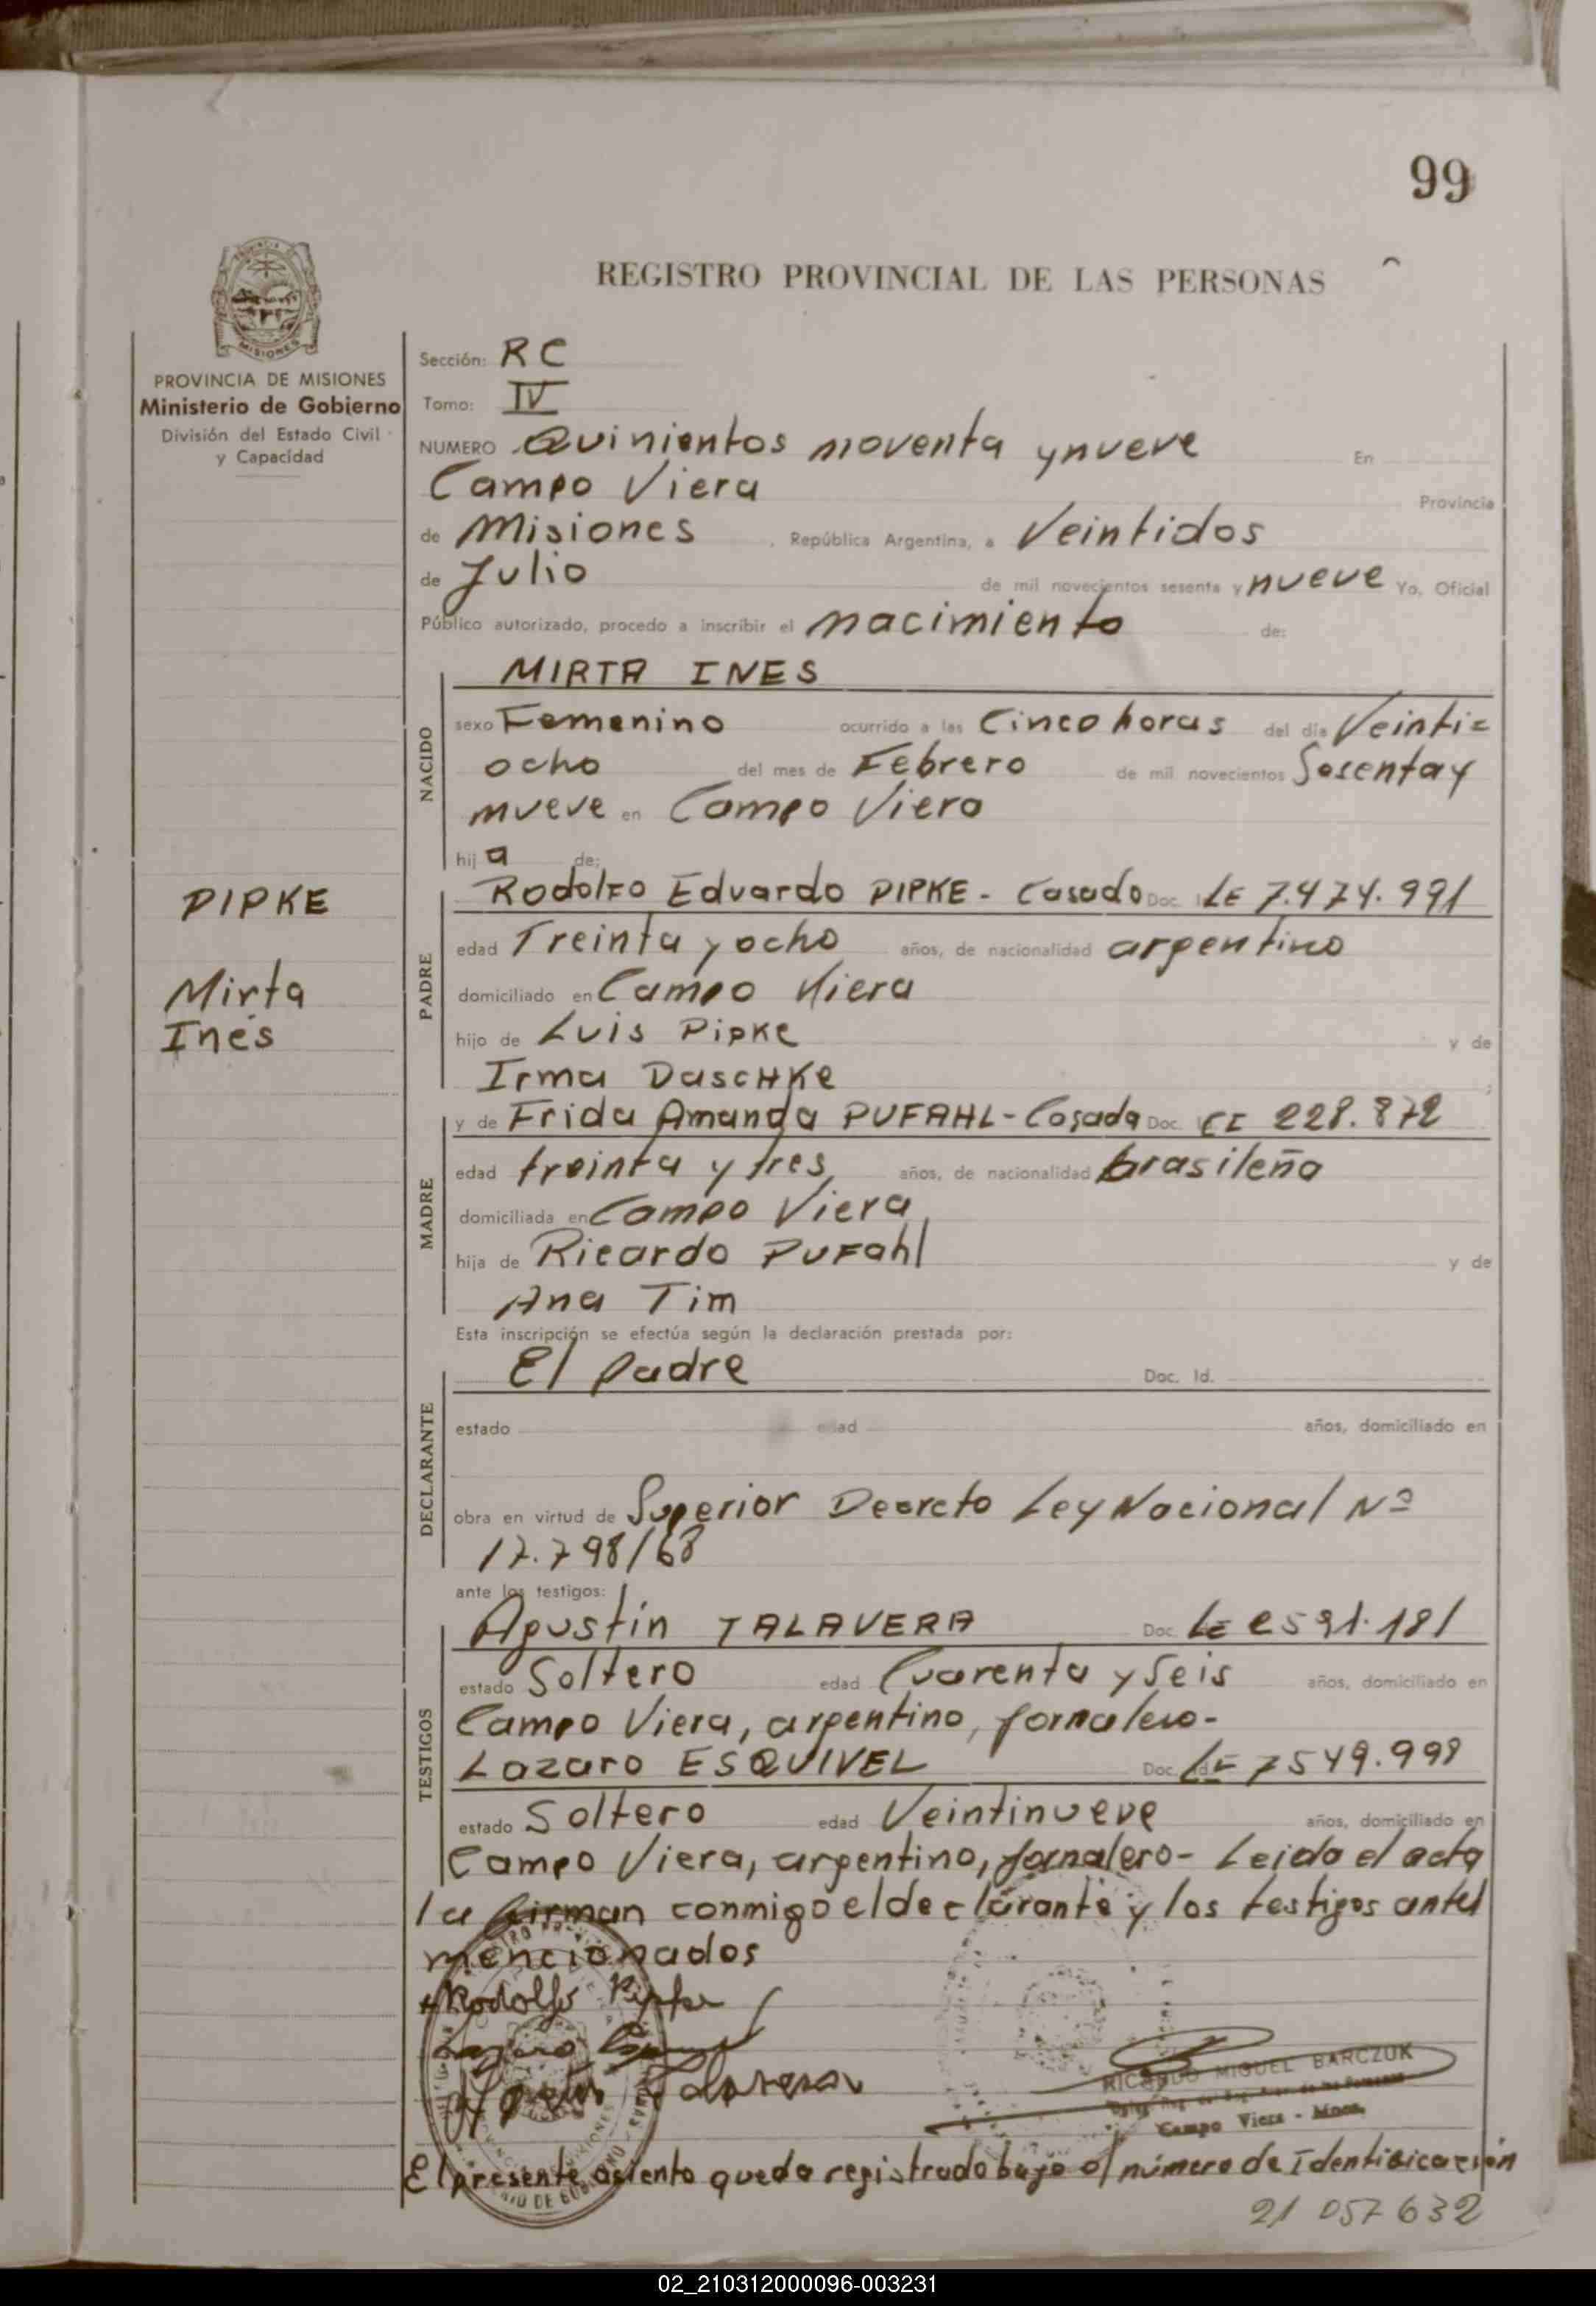 99
REGISTRO PROVINCIAL DE LAS PERSONAS
MISIONES
PROVINCIA DE MISIONES
Ministerio de Gobierno
División del Estado Civil
y Capacidad
Sección: RC
Tomo: IV
NUMERO Quinientos noventa y nueve En
Campo Viera Provincia
de Misiones, República Argentina, a Veintidos
de Julio de mil novecientos sesenta y nueve Yo, Oficial
Público autorizado, procedo a inscribir el nacimiento de:
NACIDO
MIRTA INES
sexo Femenino ocurrido a las Cinco horas del día Veinti=
ocho del mes de Febrero de mil novecientos Sesenta y
nueve en Campo Viera
hija de:
PIPKE
Mirta
Inés
PADRE
Rodolfo Eduardo PIPKE - Casado Doc. LE 7.474.991
edad Treinta y ocho años, de nacionalidad argentino
domiciliado en Campo Viera
hijo de Luis Pipke y de
Irma Daschke ;
MADRE
y de Frida Amanda PUFAHL - Casada Doc. CI 228.872
edad treinta y tres años, de nacionalidad brasileña
domiciliada en Campo Viera
hija de Ricardo Pufahl y de
Ana Tim
Esta inscripción se efectúa según la declaración prestada por:
DECLARANTE
El padre Doc. Id.
estado edad años, domiciliado en
obra en virtud de Superior Decreto Ley Nacional Nº
17.798/68
ante los testigos:
TESTIGOS
Agustín TALAVERA Doc. LE 2591.181
estado Soltero edad Cuarenta y Seis años, domiciliado en
Campo Viera, argentino, jornalero-
Lazaro ESQUIVEL Doc. Id. LE 7549.999
estado Soltero edad Veintinueve años, domiciliado en
Campo Viera, argentino, jornalero- Leida el acta
la firman conmigo el declarante y los testigos antes
mencionados
Rodolfo Pipke
RICARDO MIGUEL BARCZUK
Campo Viera - Mnes.
El presente asiento queda registrado bajo el número de Identificación
21 057 632
02_210312000096-003231